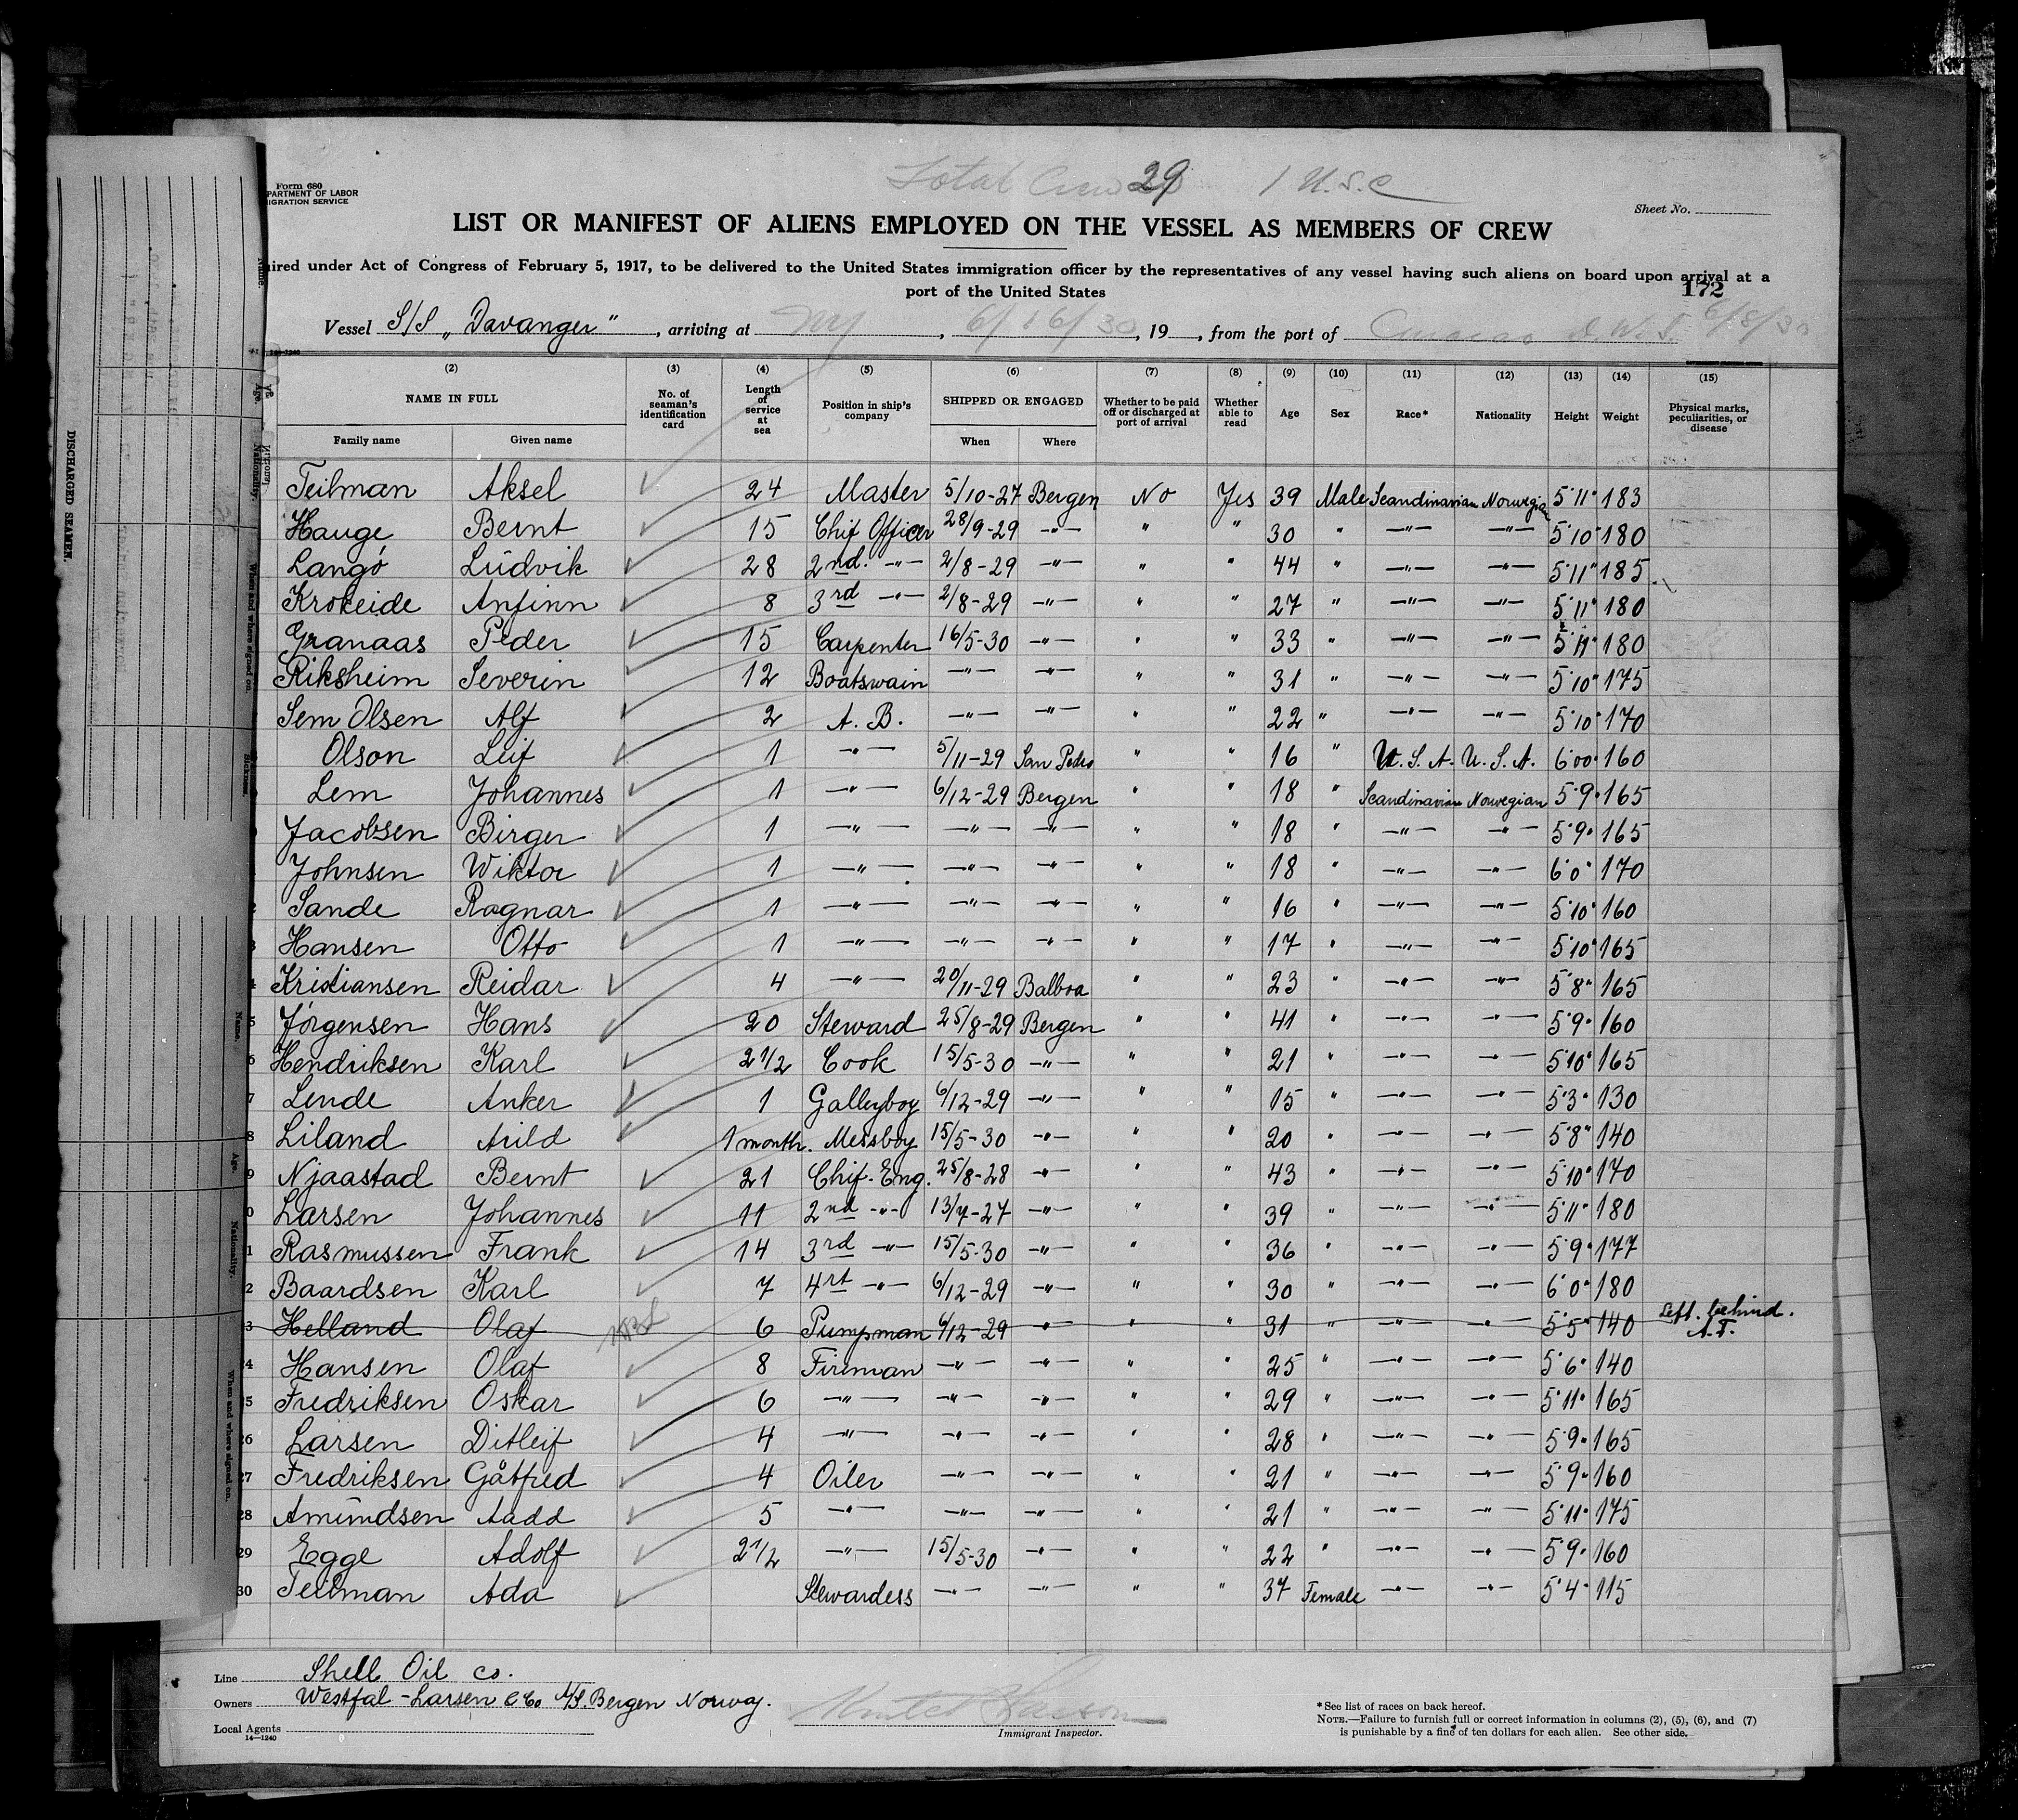 Total Crew 29 1 U.S.C
Form 680
PARTMENT OF LABOR
IGRATION SERVICE
Sheet No.
LIST OR MANIFEST OF ALIENS EMPLOYED ON THE VESSEL AS MEMBERS OF CREW
uired under Act of Congress of February 5, 1917, to be delivered to the United States immigration officer by the representatives of any vessel having such aliens on board upon arrival at a
port of the United States
172
Vessel S/S „Davanger“, arriving at NY, 6/16/30, 19, from the port of Curacao D.W.I. 6/8/30
14-1240
(2) (3) (4) (5) (6) (7) (8) (9) (10) (11) (12) (13) (14) (15)
NAME IN FULL No. of seaman's identification card Length of service at sea Position in ship's company SHIPPED OR ENGAGED Whether to be paid off or discharged at port of arrival Whether able to read Age Sex Race* Nationality Height Weight Physical marks, peculiarities, or disease
Family name Given name When Where
Teilman Aksel 24 Master 5/10-27 Bergen No Yes 39 Male Scandinavian Norwegian 5'11" 183
Hauge Bernt 15 Chif Officer 28/9-29 -"- " " 30 " -"- -"- 5'10" 180
Langö Ludvik 28 2nd. -"- 2/8-29 -"- " " 44 " -"- -"- 5'11" 185
Krokeide Anfinn 8 3rd -"- 2/8-29 -"- " " 27 " -"- -"- 5'11" 180
Granaas Peder 15 Carpenter 16/5-30 -"- " " 33 " -"- -"- 5'11" 180
Riksheim Severin 12 Boatswain -"- -"- " " 31 " -"- -"- 5'10" 175
Sem Olsen Alf 2 A. B. -"- -"- " " 22 " -"- -"- 5'10" 170
Olson Leif 1 -"- 5/11-29 San Pedro " " 16 " U.S.A. U.S.A. 6'00" 160
Lem Johannes 1 -"- 6/12-29 Bergen " " 18 " Scandinavian Norwegian 5'9" 165
Jacobsen Birger 1 -"- -"- -"- " " 18 " -"- -"- 5'9" 165
Johnsen Wiktor 1 -"- -"- -"- " " 18 " -"- -"- 6'0" 170
Sande Ragnar 1 -"- -"- -"- " " 16 " -"- -"- 5'10" 160
Hansen Otto 1 -"- -"- -"- " " 17 " -"- -"- 5'10" 165
Kristiansen Reidar 4 -"- 20/11-29 Balboa " " 23 " -"- -"- 5'8" 165
Jørgensen Hans 20 Steward 25/8-29 Bergen " " 41 " -"- -"- 5'9" 160
Hendriksen Karl 2 1/2 Cook 15/5-30 -"- " " 21 " -"- -"- 5'10" 165
Lende Anker 1 Galleyboy 6/12-29 -"- " " 15 " -"- -"- 5'3" 130
Liland Arild 1 month. Messboy 15/5-30 -"- " " 20 " -"- -"- 5'8" 140
Njaastad Bernt 21 Chif. Eng. 25/8-28 -"- " " 43 " -"- -"- 5'10" 170
Larsen Johannes 11 2nd -"- 13/7-27 -"- " " 39 " -"- -"- 5'11" 180
Rasmussen Frank 14 3rd -"- 15/5-30 -"- " " 36 " -"- -"- 5'9" 177
Baardsen Karl 7 4rt -"- 6/12-29 -"- " " 30 " -"- -"- 6'0" 180
Helland Olaf 6 Pumpman 6/12-29 -"- " " 31 " -"- -"- 5'5" 140 Left behind. A.T.
24 Hansen Olaf 8 Fireman -"- -"- " " 25 " -"- -"- 5'6" 140
25 Fredriksen Oskar 6 -"- -"- -"- " " 29 " -"- -"- 5'11" 165
26 Larsen Ditleif 4 -"- -"- -"- " " 28 " -"- -"- 5'9" 165
27 Fredriksen Gåtfred 4 Oiler -"- -"- " " 21 " -"- -"- 5'9" 160
28 Amundsen Aadd 5 -"- -"- -"- " " 21 " -"- -"- 5'11" 175
29 Egge Adolf 2 1/2 -"- 15/5-30 -"- " " 22 " -"- -"- 5'9" 160
30 Teilman Ada Stewardess -"- -"- " " 37 Female -"- -"- 5'4" 115
Line Shell Oil Co.
Owners Westfal-Larsen & Co A/S. Bergen Norway.
Local Agents
14-1240
Immigrant Inspector.
*See list of races on back hereof.
NOTE.—Failure to furnish full or correct information in columns (2), (5), (6), and (7)
is punishable by a fine of ten dollars for each alien. See other side.
DISCHARGED SEAMEN.
Name.
Age.
Nationality.
When and where signed on.
Sickness.
Name.
Age.
Nationality.
When and where signed on.